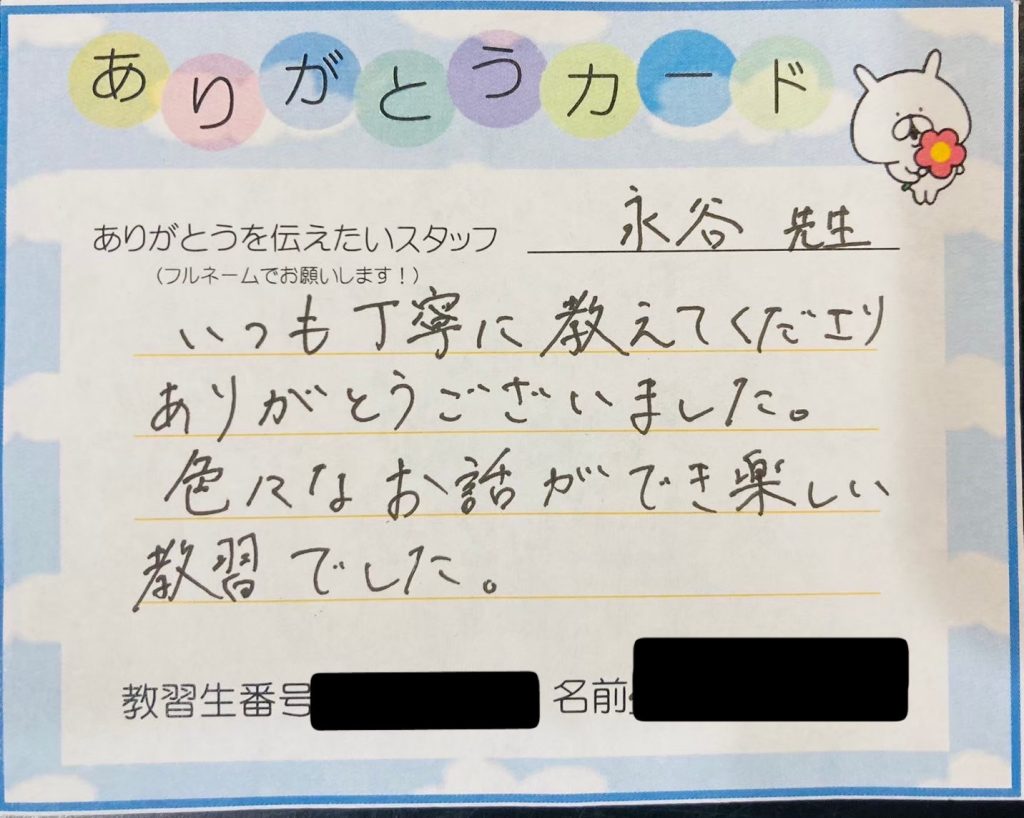 ありがとうカード
ありがとうを伝えたいスタッフ 永谷 先生
(フルネームでお願いします!)
いつも丁寧に教えてくださり
ありがとうございました。
色々なお話ができ楽しい
教習でした。
教習生番号 名前